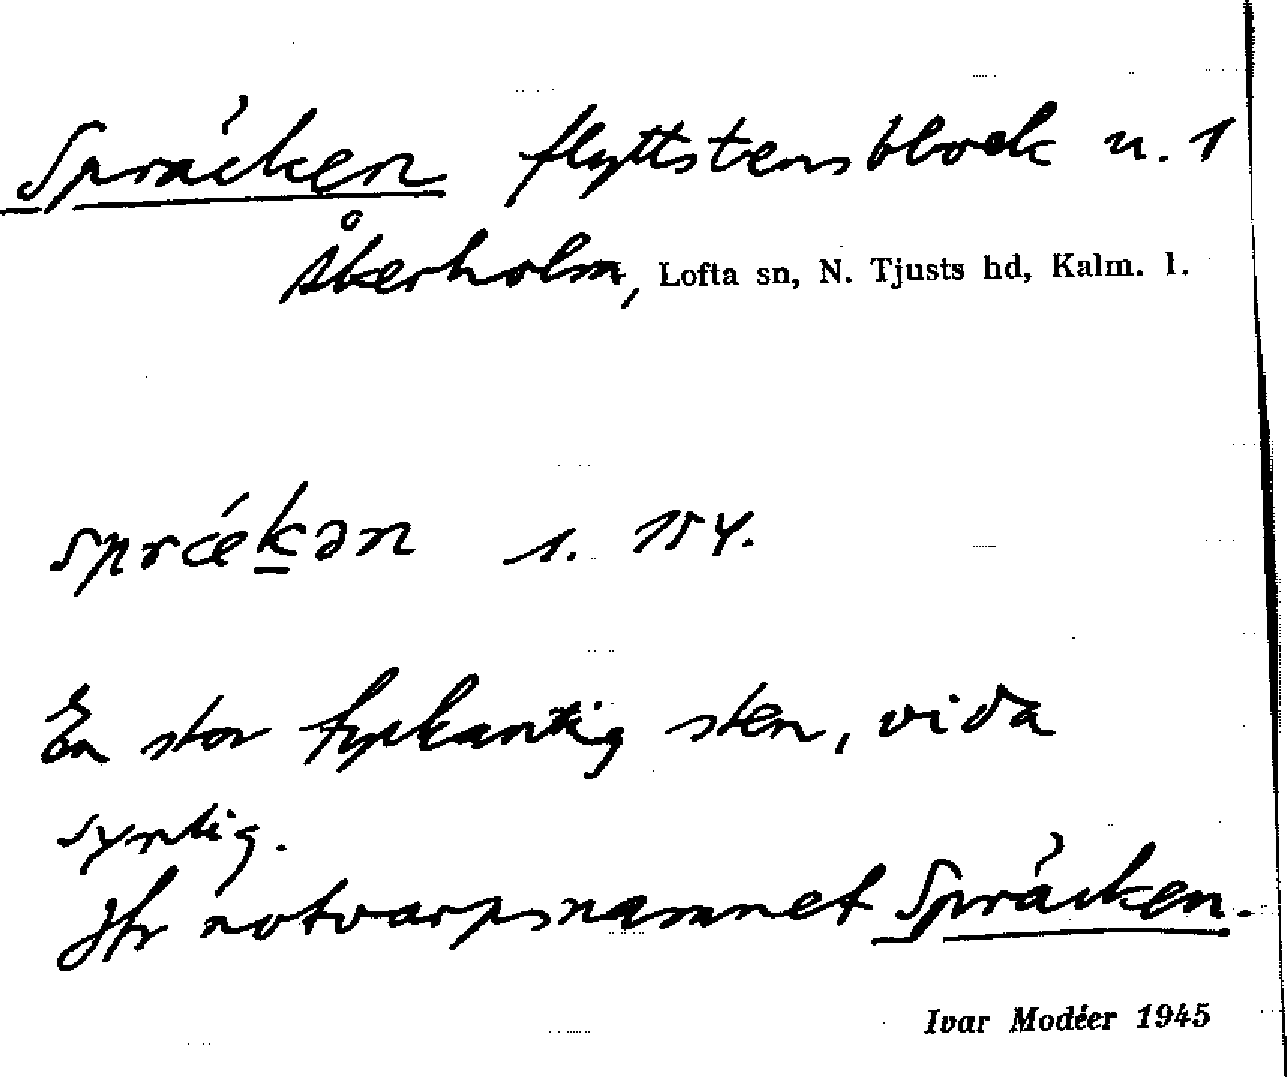 Spräcken flyttstensblock n. 1
Åkerholm, Lofta sn, N. Tjusts hd, Kalm. l.
spræḵən s. 154.
En stor fyrkantig sten, vida
synlig.
Jfr notvarpsnamnet Spräcken.
Ivar Modéer 1945